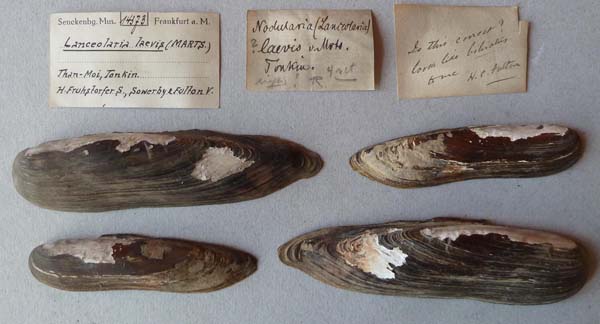 Senckenbg. Mus. 14173 Frankfurt a. M.
Lanceolaria laevis (MARTS.)
Than-Moi, Tonkin.
H. Fruhstorfer S., Sowerby & Fulton V.
Nodularia (Lanceolaria)
? laevis v. Mrts.
Tonkin.
4 ect
Is this correct?
looks like
true H. C. Fulton